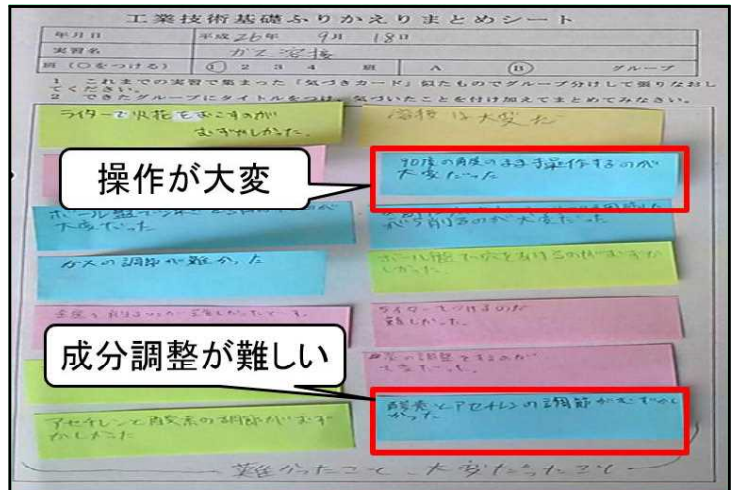 工業技術基礎ふりかえりまとめシート
年月日 平成26年 9月 18日
実習名 ガス溶接
班（○をつける） 1 2 3 4 班 A B グループ
1 これまでの実習で集まった「気づきカード」似たものでグループ分けして張りなおしてください。
2 できたグループにタイトルをつけ、気づいたことを付け加えてまとめてみなさい。
ライターで火花をおこすのが
むずかしかった。
溶接は大変だ
操作が大変
90度の角度のまま操作するのが
大変だった
ボール盤で
大変だった
が大変だった
ガスの調節が難かった
ボール盤で穴をあけるのがむずか
しかった。
ライターでつけるのが
難しかった。
成分調整が難しい
の調整をするのが
大変だった。
酸素とアセチレンの調節がむずかし
かった
アセチレンと酸素の調節がむず
かしかった
難かったこと、大変だったこと